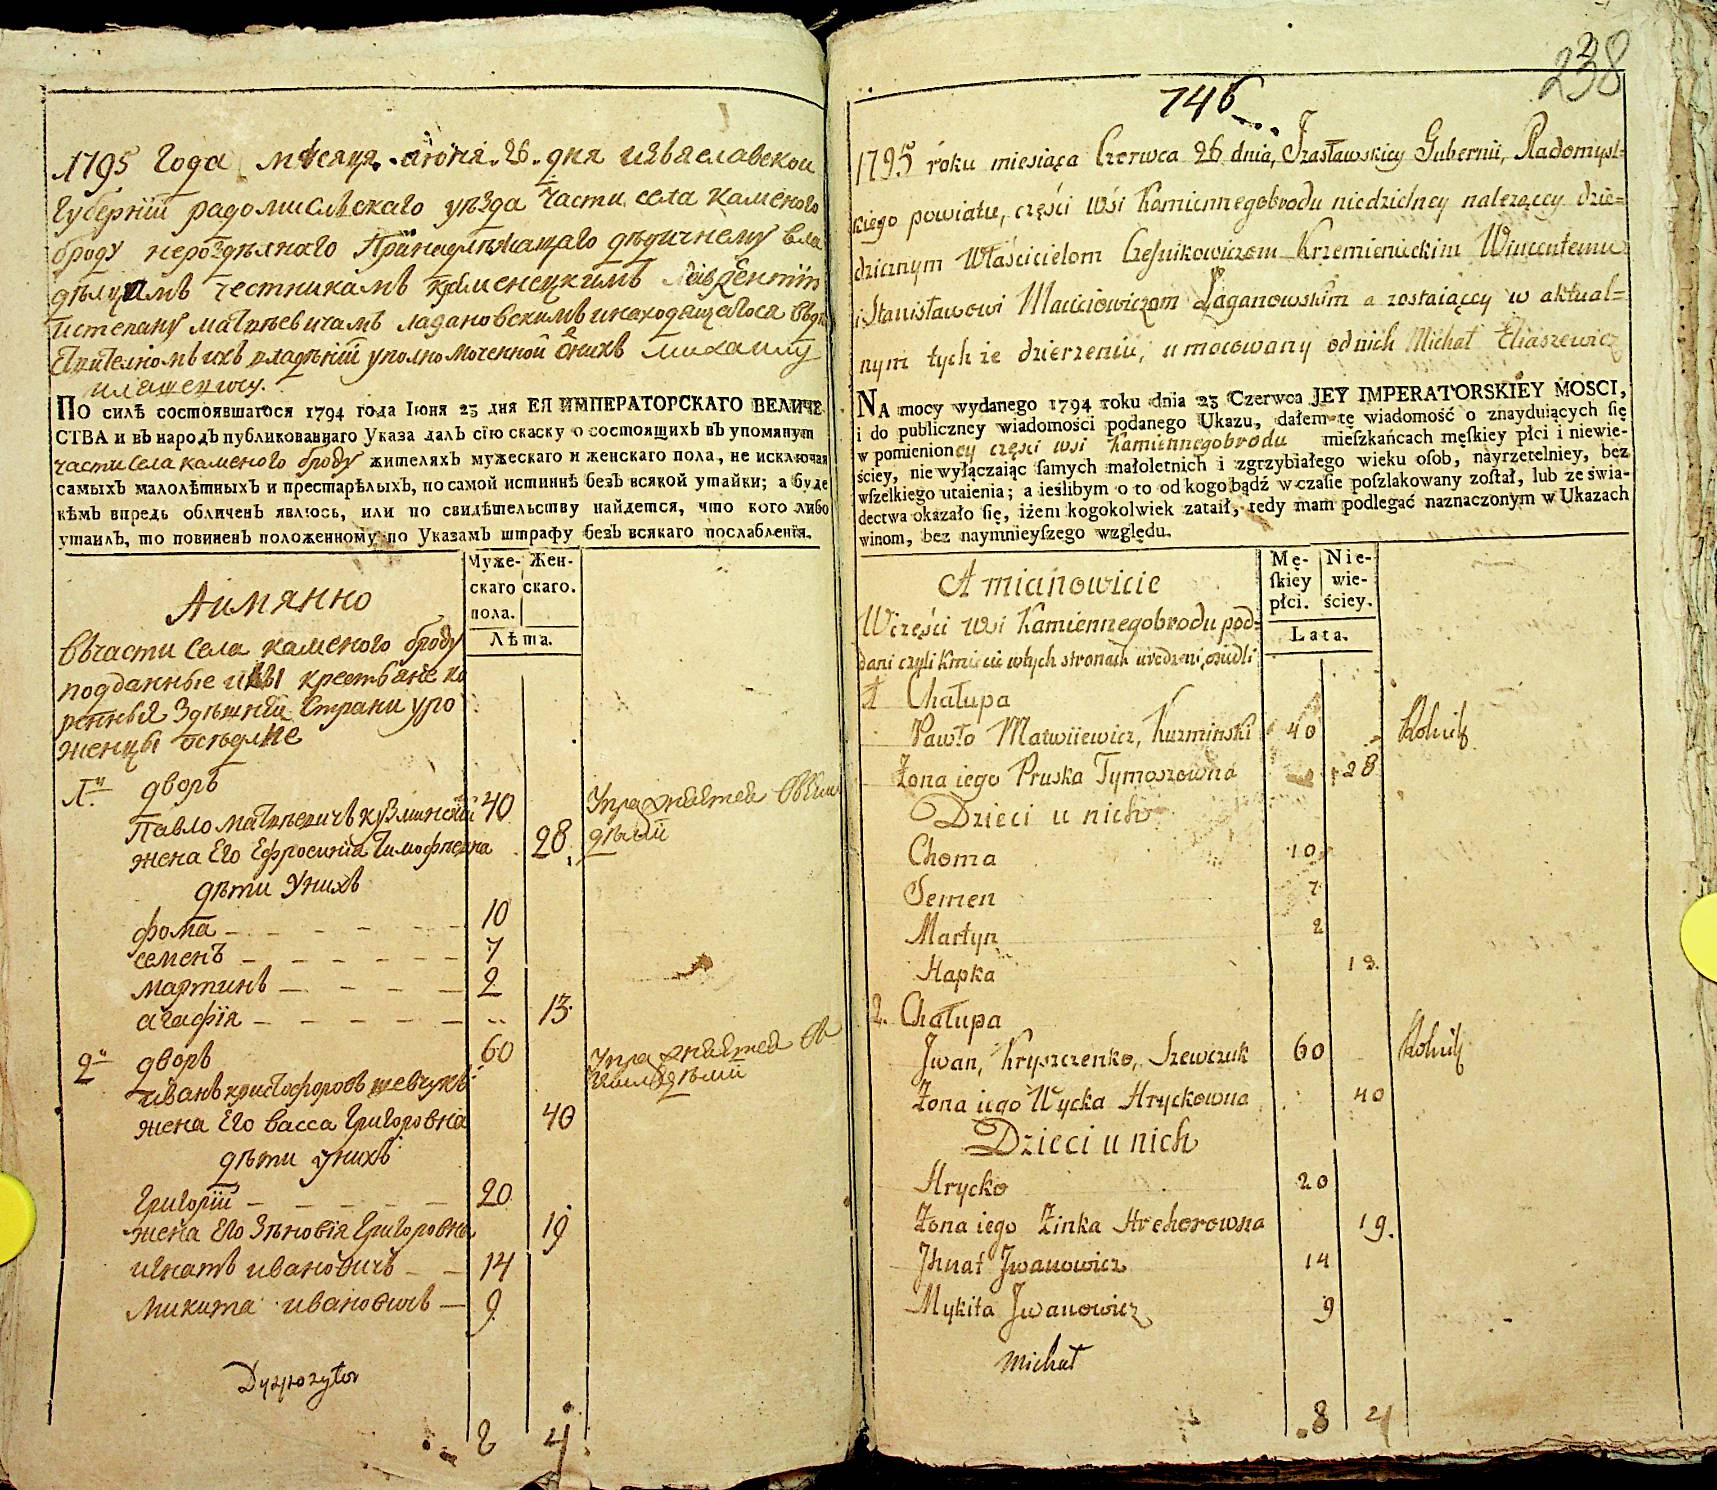 1795 года мѣсяца июня 26 дня изъяславской
губернїи радомислскаго уѣзда части села каменого
броду нероздѣлнаго принадлѣжащаго дѣдичнему вла
дѣлцамъ честникамъ кременецкимъ
истепану матвѣевичамъ лагановскимъ инаходящегося вдѣй
ствителномъ ихъ владѣнїи уполномоченной ѿнихъ михаилу
илашевичу.
ПО силѣ состоявшагося 1794 года Іюня 23 дня ЕЯ ИМПЕРАТОРСКАГО ВЕЛИЧЕ
СТВА и въ народъ публикованнаго Указа далъ сїю скаску о состоящихъ въ упомянутой
части села каменого броду жителяхъ мужескаго и женскаго пола, не исключая
самыхъ малолѣтныхъ и престарѣлыхъ, по самой истиннѣ безъ всякой утайки; а буде
кѣмъ впредь обличенъ явлюсь, или по свидѣтельству найдется, что кого либо
утаилъ, то повиненъ положенному по Указамъ штрафу безъ всякаго послабленїя.
Муже- Жен-
скаго скаго.
пола.
Лѣта.
Аимянно
Вчасти села каменого броду
подданные крестьяне ко
ренныя здѣшнїи страни уро
женцы осѣдлие
1й дворъ
Павло матвѣевичъ кузминскїй 40 Упражняется
жена Его Ефросинїа Тимофѣевна 28
дѣти Унихъ
фома 10
семенъ 7
мартинъ 2
агафїя 13
2й дворъ 60 Упражняется въ
иванъ христофоровъ шевчукъ
жена Его васса григоровна 40
дѣти унихъ
григорїй 20
жена Его Зѣновїя григоровна 19
игнатъ ивановичъ 14
микита ивановичъ 9
Dyspozytor
8 4
238
746
1795 roku miesiąca Czerwca 26 dnia, Izasławskiey Gubernii, Radomysl=
skiego powiatu, części wsi Kamiennegobrodu niedzielney należącey dzie=
dzicznym Właścicielom Cześnikowiczom Krzemienieckim Wincentemu
i Stanisławowi Maciciowiczom Łaganowskim a zostaiącey w aktual=
nym tych że dzierzeniu, umocowany od nich Michał Eliaszewicz
NA mocy wydanego 1794 roku dnia 23 Czerwca JEY IMPERATORSKIEY MOSCI,
i do publiczney wiadomości podanego Ukazu, dałem tę wiadomość o znayduiących się
w pomienioney części wsi Kamiennegobrodu mieszkańcach męskiey płci i niewie-
ściey, nie wyłączaiąc samych małoletnich i zgrzybiałego wieku osob, nayrzetelniey, bez
wszelkiego utaienia; a ieślibym o to od kogo bądź w czasie poszlakowany został, lub ze świa-
dectwa okazało się, iżem kogokolwiek zataił, tedy mam podlegać naznaczonym w Ukazach
winom, bez naymnieyszego względu.
Mę- Nie-
skiey wie-
płci. ściey.
Lata.
A mianowicie
W części wsi Kamiennegobrodu pod=
dani czyli Kmiecie w tych stronach urodzeni, osiedli
1 Chałupa
Pawło Matwiiewicz, Kuzminski 40 Rolnik
Żona iego Pruska Tymoszowna 28
Dzieci u nich
Choma 10
Semen 7
Martyn 2
Hapka 13.
2. Chałupa
Jwan, Kryszczenko, Szewczuk 60 Rolnik
Żona iego Wycka Hryckowna 40
Dzieci u nich
Hrycko 20
Żona iego Zinka Hrehorowna 19.
Jhnat Jwanowicz 14
Mykita Jwanowicz 9
Michał
8 4